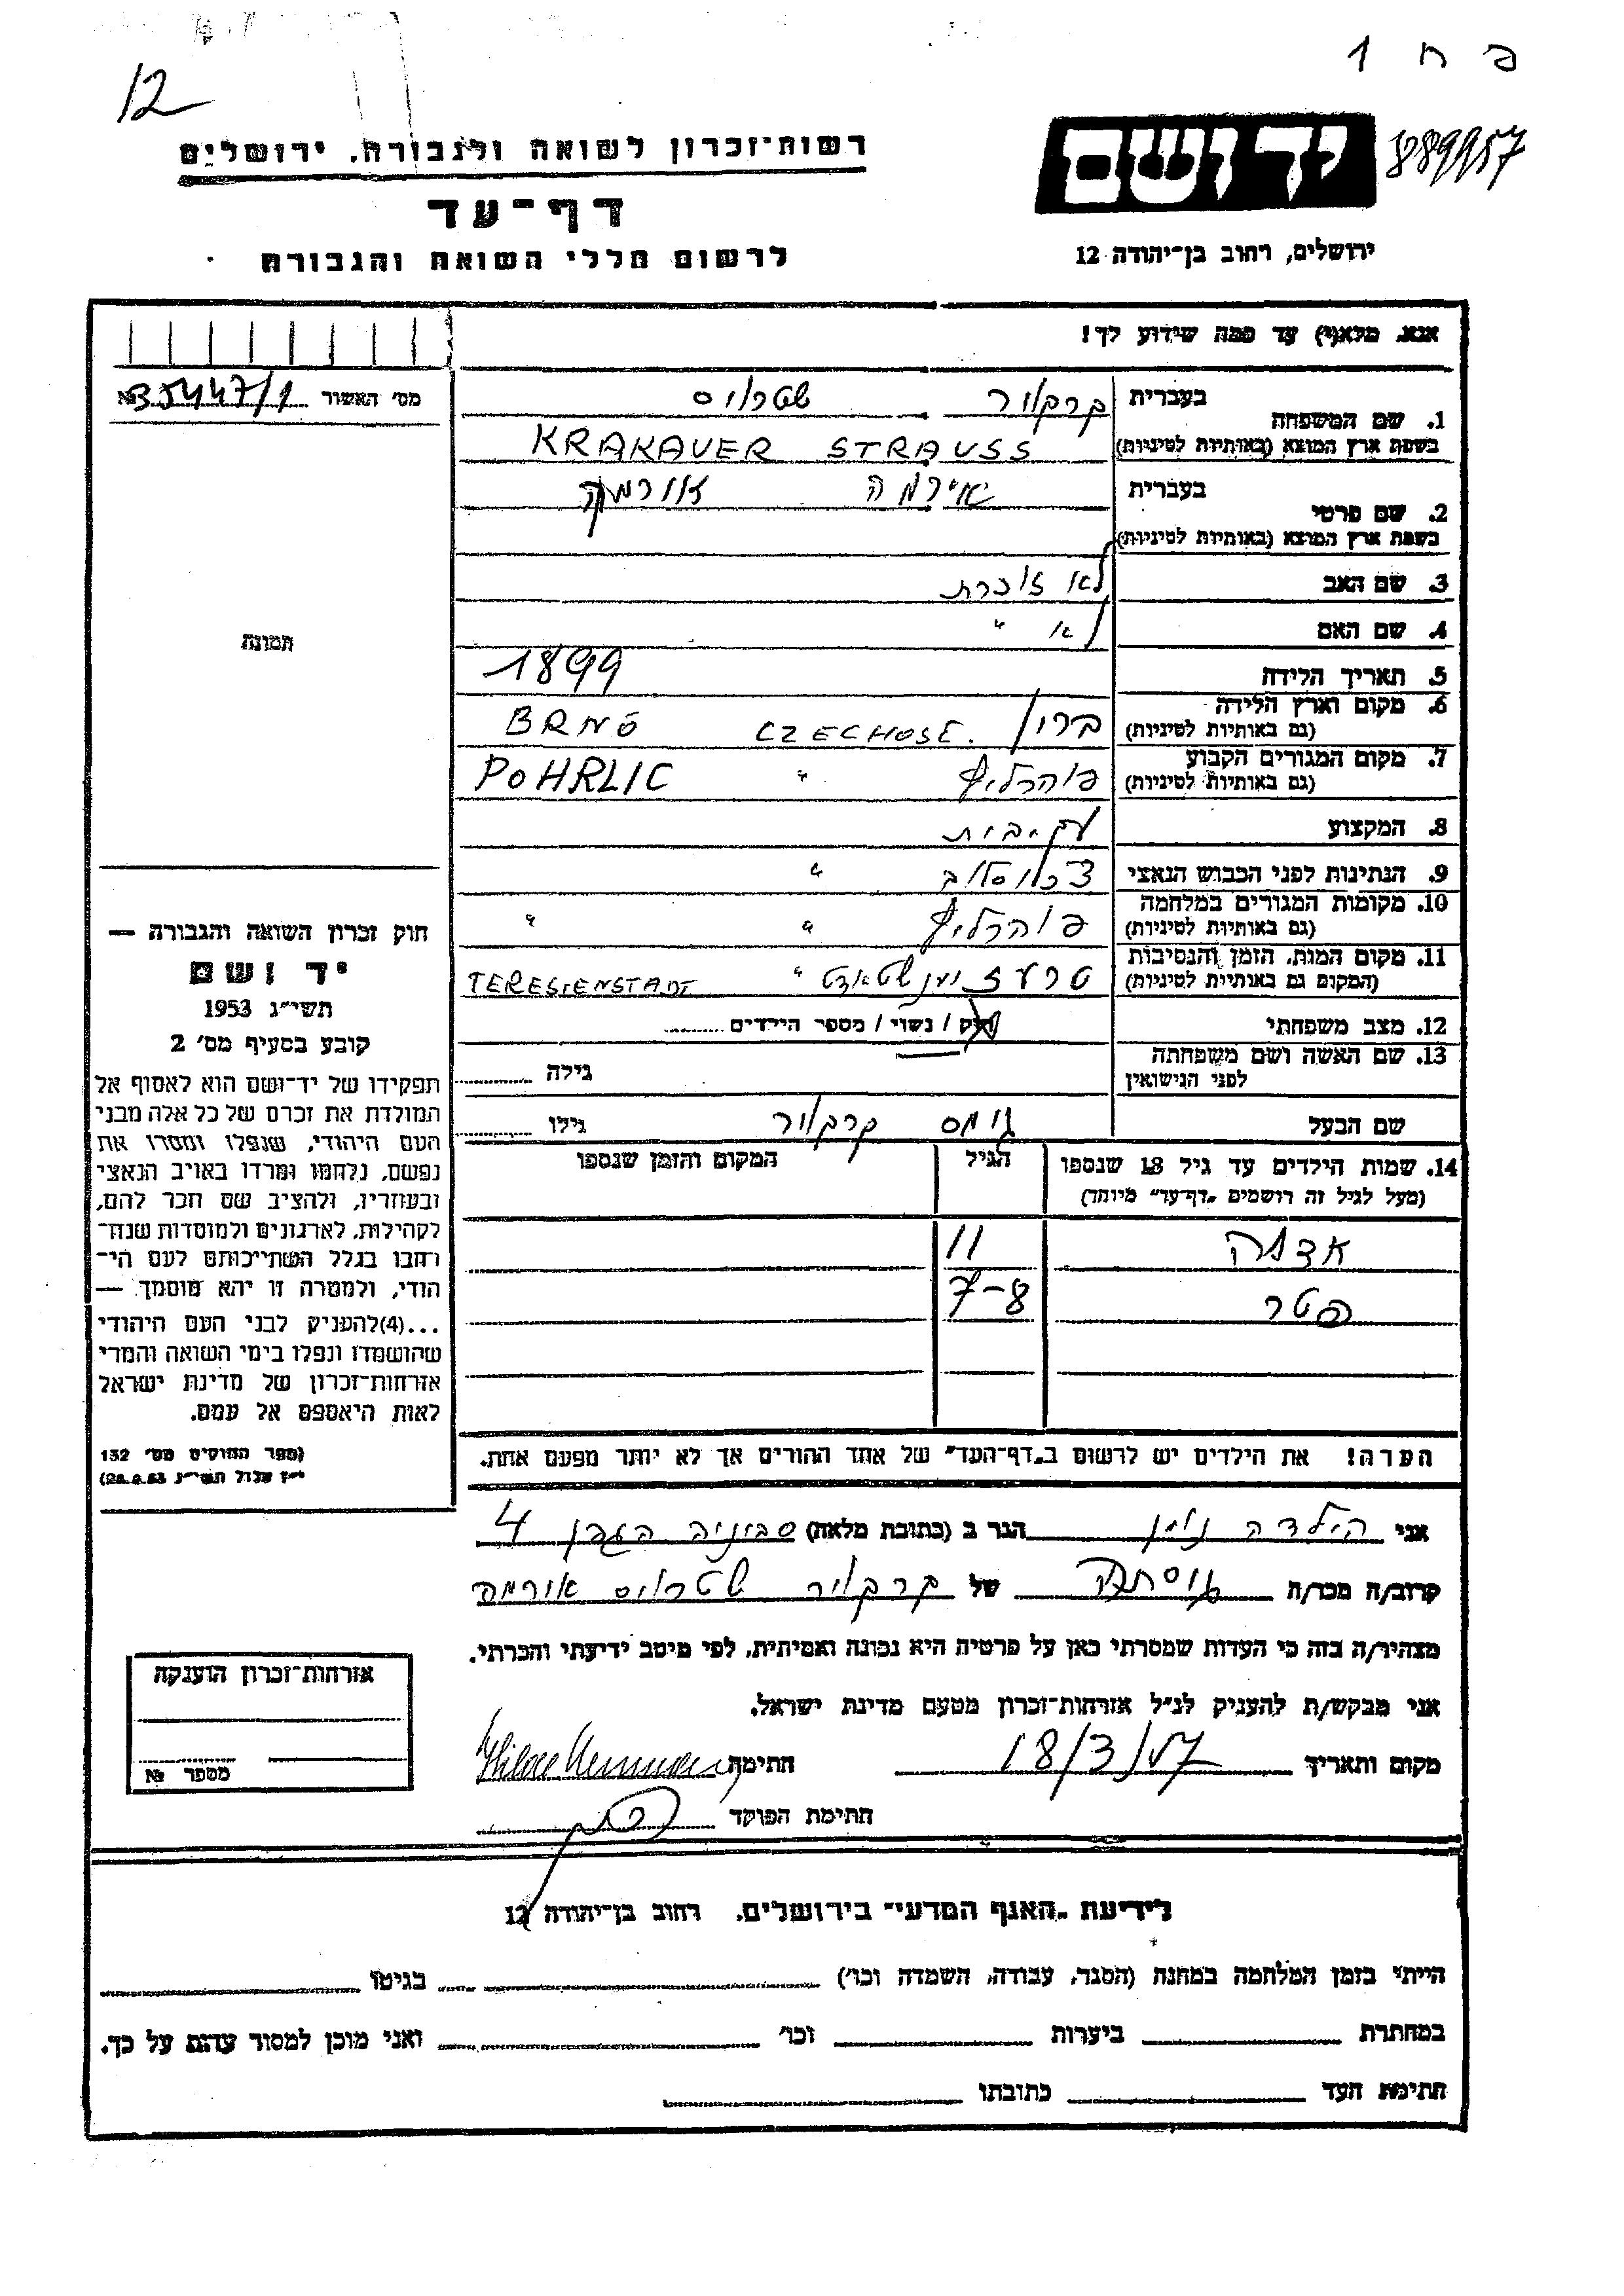 פ ח 1
12
889957
יד ושם
ירושלים, רחוב בן־יהודה 12
רשות־זכרון לשואה ולגבורה. ירושלים
דף־עד
לרשום חללי השואה והגבורה
אנא. מלא(י) עד כמה שידוע לך!
מס׳ האשור № 35447/1
1. שם המשפחה בעברית קרקאור שטראוס
בשפת ארץ המוצא (באותיות לטיניות) KRAKAUER STRAUSS
2. שם פרטי בעברית אירמה
בשפת ארץ המוצא (באותיות לטיניות)
3. שם האב לא זוכרת
4. שם האם לא "
5. תאריך הלידה 1899
6. מקום וארץ הלידה (גם באותיות לטיניות) ברון CZECHOSL. BRNO
7. מקום המגורים הקבוע (גם באותיות לטיניות) פוהרליץ " POHRLIC
8. המקצוע עק.בית
9. הנתינות לפני הכבוש הנאצי צ׳כוסלוב "
10. מקומות המגורים במלחמה (גם באותיות לטיניות) פוהרליץ " "
11. מקום המות, הזמן והנסיבות (המקום גם באותיות לטיניות) טרעזיונשטאדט " TERESIENSTADT
12. מצב משפחתי רווק / נשוי / מספר הילדים
13. שם האשה ושם משפחתה לפני הנישואין גילה
שם הבעל קרקאור גילו
14. שמות הילדים עד גיל 18 שנספו הגיל המקום והזמן שנספו
(מעל לגיל זה רושמים "דף־עד" מיוחד)
11
פטר 7-8
הערה! את הילדים יש לרשום ב"דף־העד" של אחד ההורים אך לא יותר מפעם אחת.
תמונה
חוק זכרון השואה והגבורה —
יד ושם
תשי״ג 1953
קובע בסעיף מס׳ 2
תפקידו של יד־ושם הוא לאסוף אל
המולדת את זכרם של כל אלה מבני
העם היהודי, שנפלו ומסרו את
נפשם, נלחמו ומרדו באויב הנאצי
ובעוזריו, ולהציב שם וזכר להם,
לקהילות, לארגונים ולמוסדות שנח־
רחבו בגלל השתייכותם לעם הי־
הודי, ולמטרה זו יהא מוסמך —
...(4)להעניק לבני העם היהודי
שהושמדו ונפלו בימי השואה והמרי
אזרחות־זכרון של מדינת ישראל
לאות היאספם אל עמם.
(ספר החוקים מס׳ 132
י״ז אלול תשי״ג 28.8.53)
אני הילדה נוימן הגר ב (כתובת מלאה) סביניה הגפן 4
קרוב/ה מכר/ה של קרקאור שטראוס אירמה
מצהיר/ה בזה כי העדות שמסרתי כאן על פרטיה היא נכונה ואמיתית, לפי מיטב ידיעתי והכרתי.
אני מבקש/ת להעניק לנ״ל אזרחות־זכרון מטעם מדינת ישראל.
מקום ותאריך 18/3/57 חתימה Hilde Neumann
חתימת הפוקד
אזרחות־זכרון הוענקה
מספר №
לידיעת "האגף המדעי" בירושלים. רחוב בן־יהודה 12
הייתי בזמן המלחמה במחנה (הסגר, עבודה, השמדה וכו׳) בגיטו
במחתרת ביערות וכו׳ ואני מוכן למסור עדות על כך.
חתימת העד כתובתו